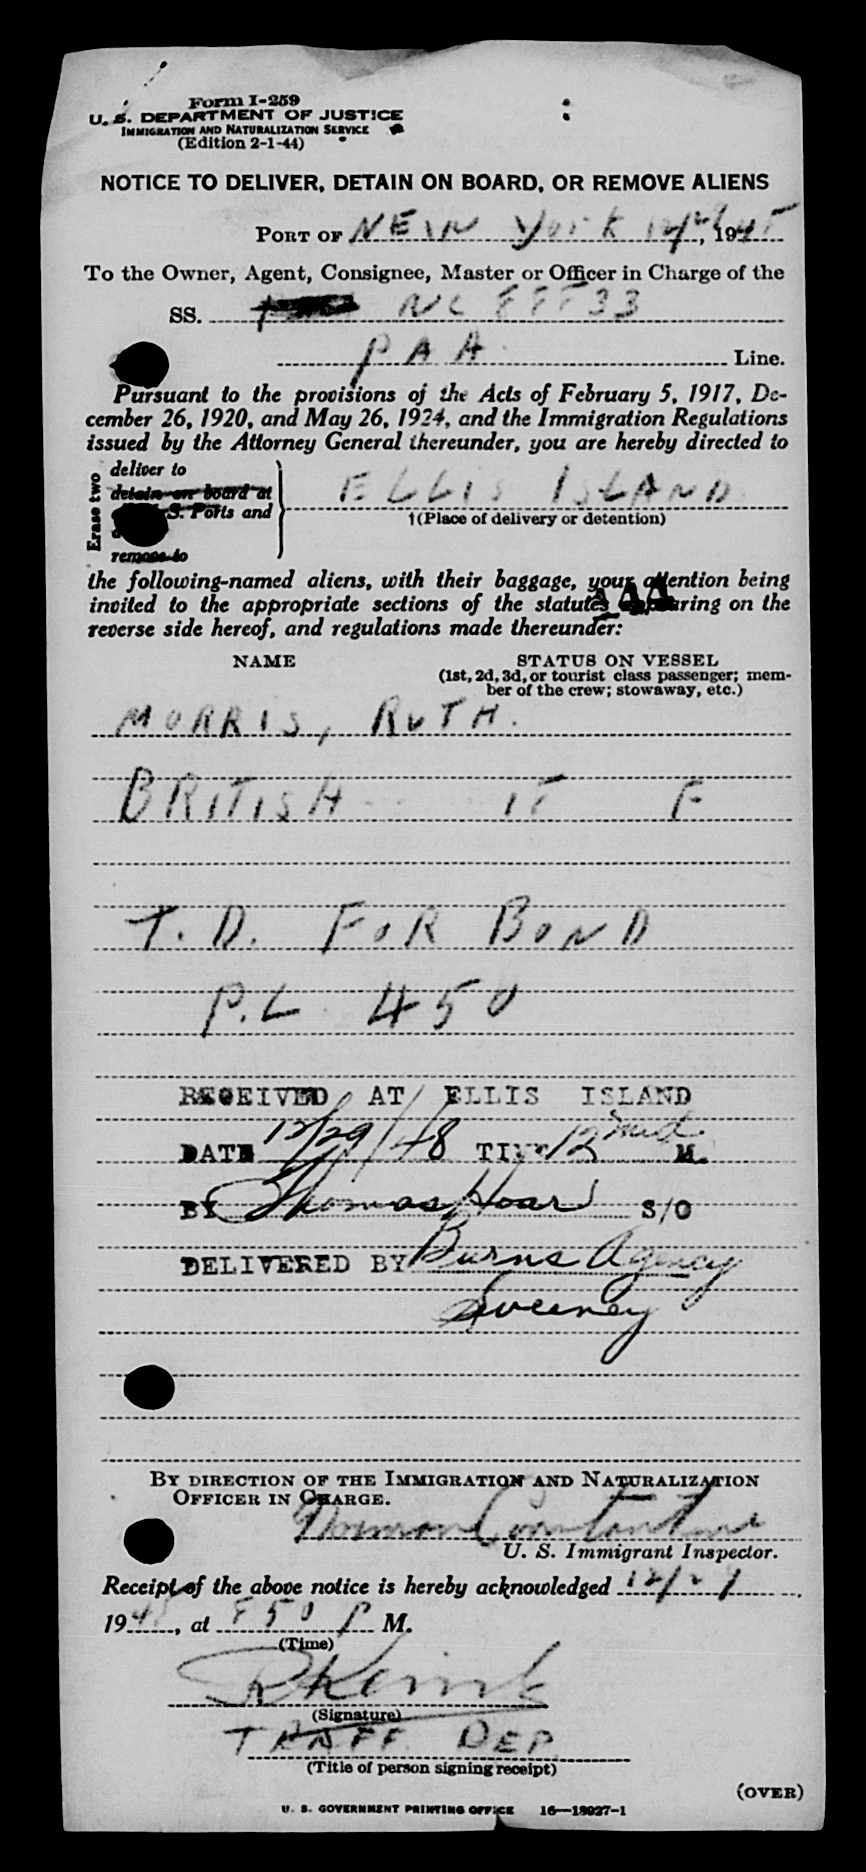 Form I-259
U. S. DEPARTMENT OF JUSTICE
IMMIGRATION AND NATURALIZATION SERVICE
(Edition 2-1-44)
NOTICE TO DELIVER, DETAIN ON BOARD, OR REMOVE ALIENS
PORT OF NEW York 12/29, 1948
To the Owner, Agent, Consignee, Master or Officer in Charge of the
SS. NC 88833
PAA Line.
Pursuant to the provisions of the Acts of February 5, 1917, De-
cember 26, 1920, and May 26, 1924, and the Immigration Regulations
issued by the Attorney General thereunder, you are hereby directed to
Erase two
deliver to
detain on board at
S. Ports and
remove to
ELLIS ISLAND
†(Place of delivery or detention)
the following-named aliens, with their baggage, your attention being
invited to the appropriate sections of the statutes appearing on the
reverse side hereof, and regulations made thereunder:
NAME
STATUS ON VESSEL
(1st, 2d, 3d, or tourist class passenger; mem-
ber of the crew; stowaway, etc.)
MORRIS, RUTH.
BRITISH F
T. D. FOR BOND
P.L 450
RECEIVED AT ELLIS ISLAND
DATE 12/29/48 TIME 12 mid M.
BY Thomas Hoare S/O
DELIVERED BY Burns Agency
Sweeney
BY DIRECTION OF THE IMMIGRATION AND NATURALIZATION
OFFICER IN CHARGE.
Norman Constantine
U. S. Immigrant Inspector.
Receipt of the above notice is hereby acknowledged 12/29
1948, at 850 P M.
(Time)
(Signature)
TRAFF DEP.
(Title of person signing receipt)
(OVER)
U. S. GOVERNMENT PRINTING OFFICE 16—18927-1